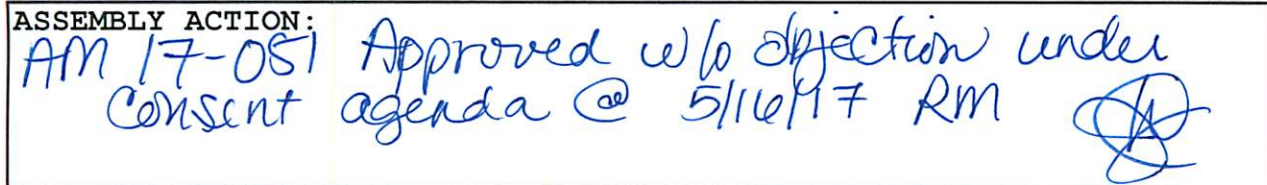 ASSEMBLY ACTION:
AM 17-051 Approved w/o objection under
consent agenda @ 5/16/17 RM